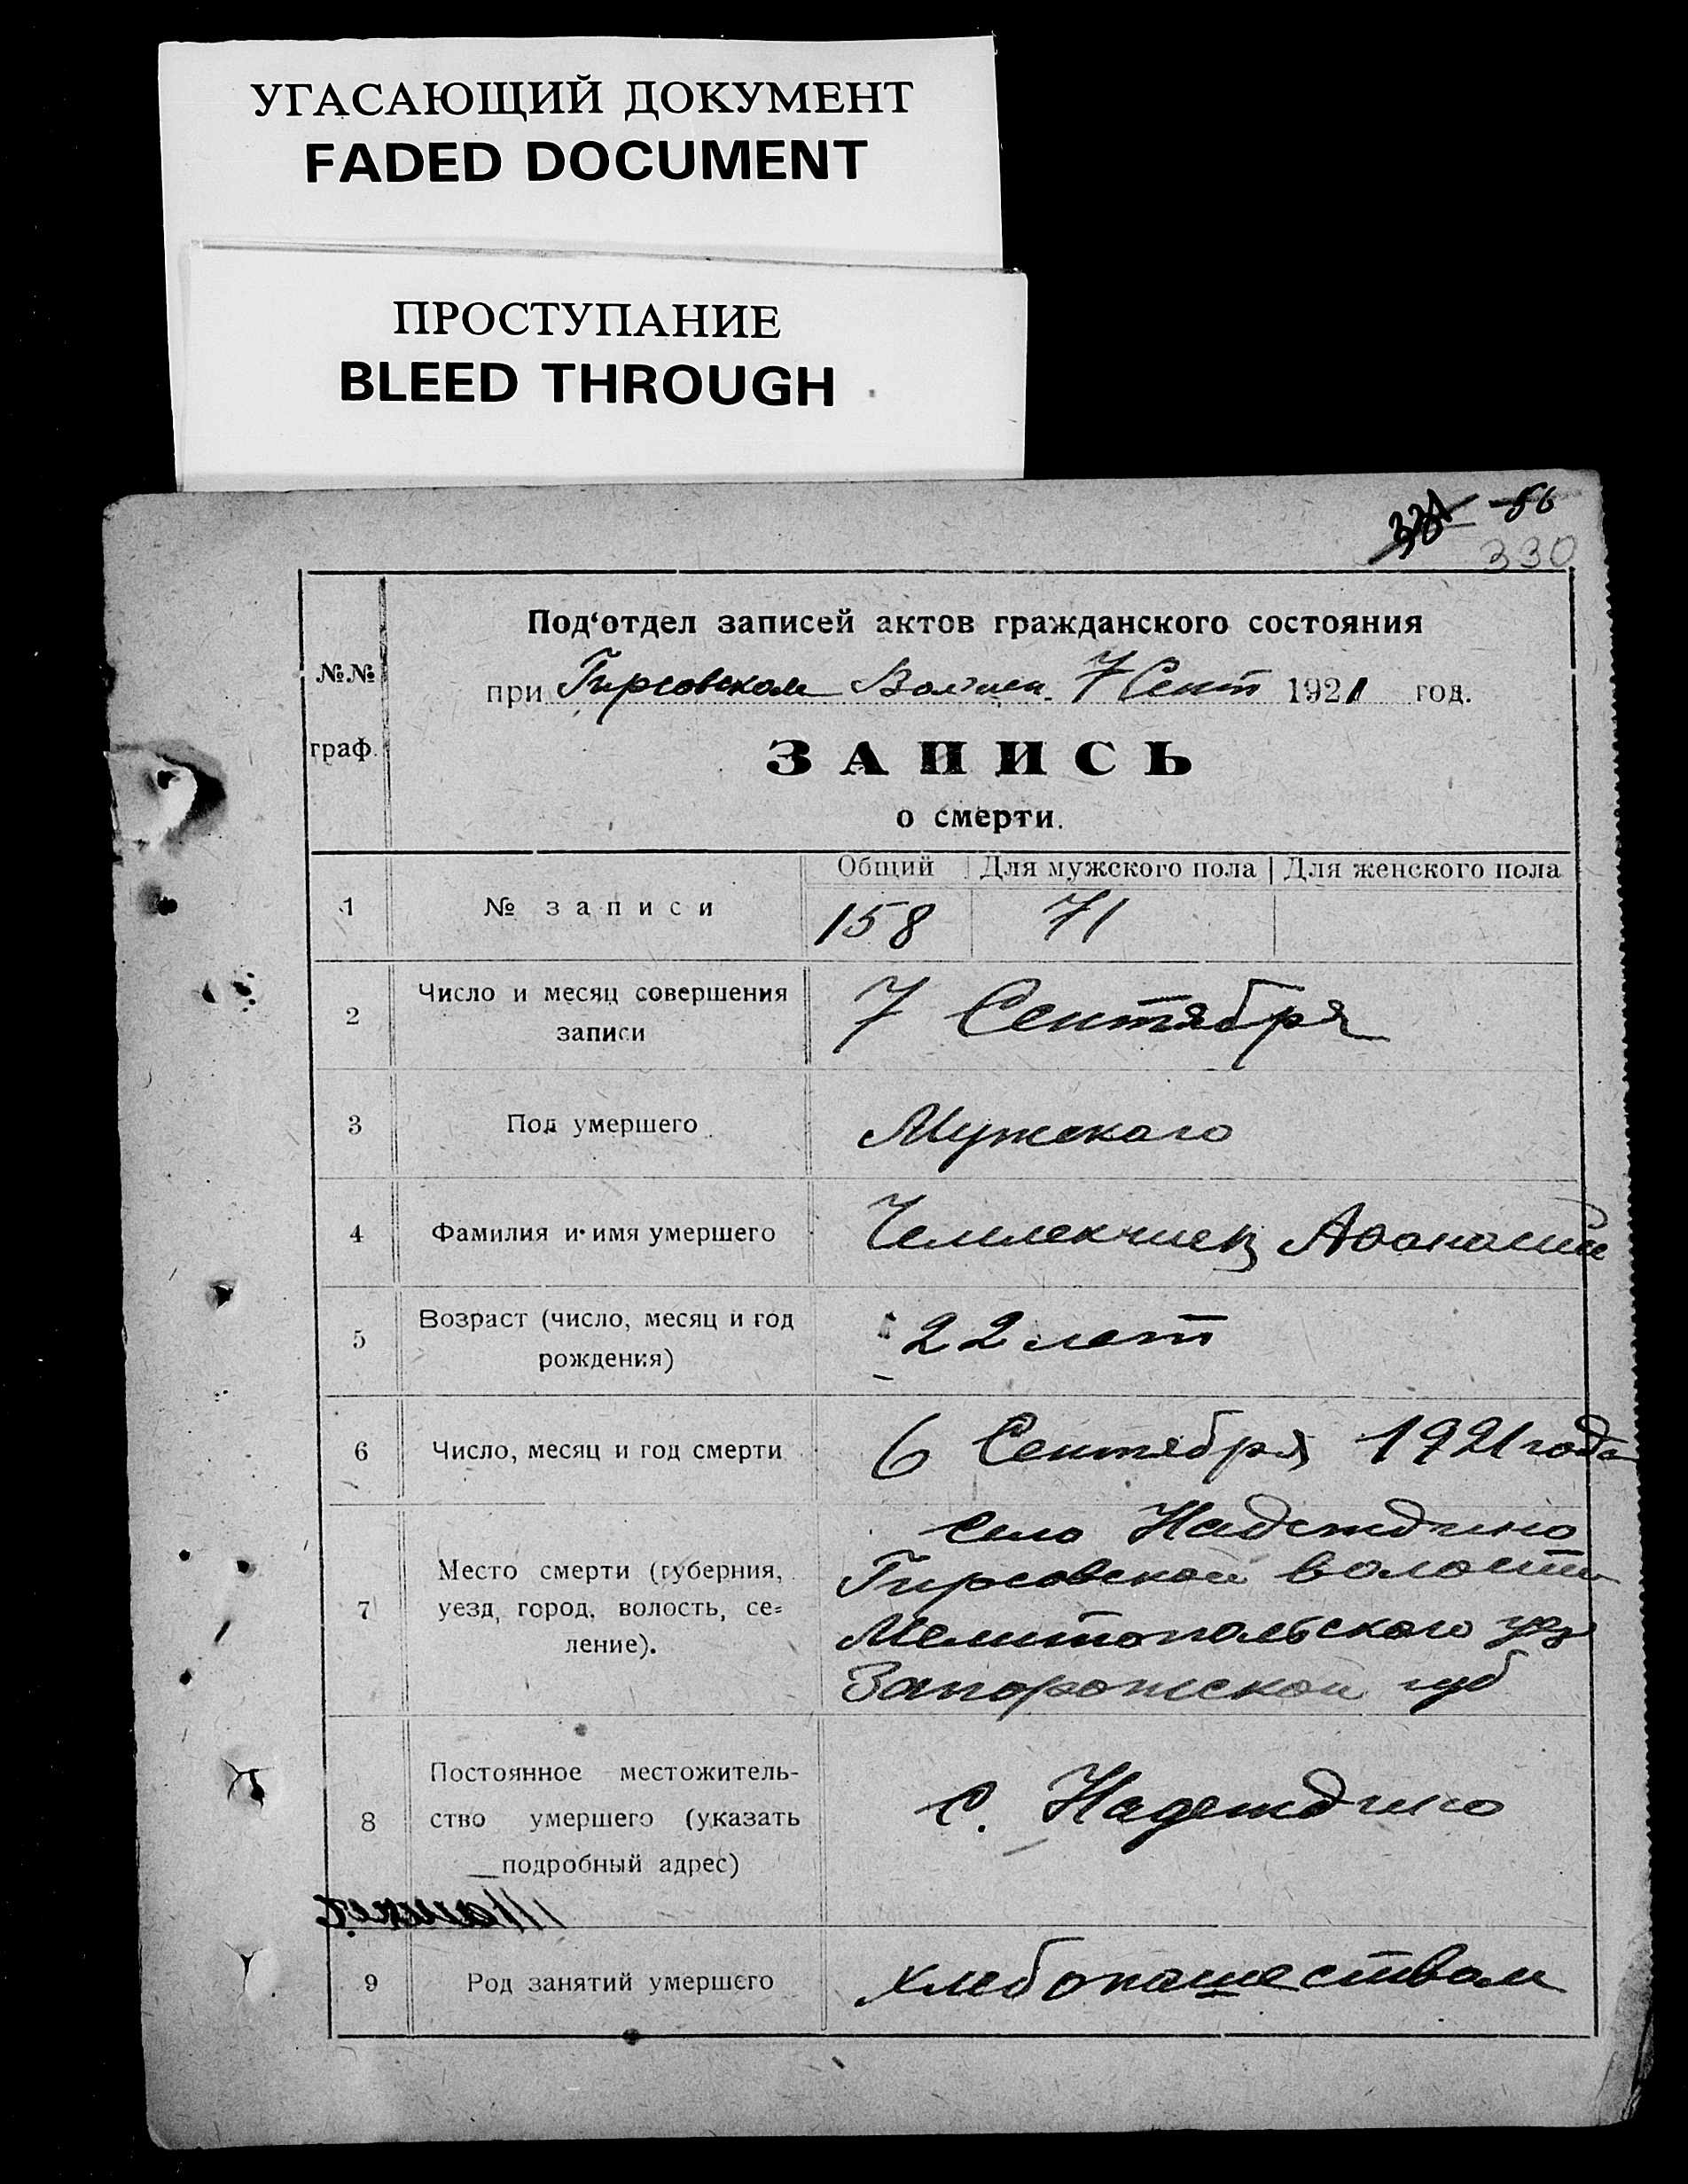 УГАСАЮЩИЙ ДОКУМЕНТ
FADED DOCUMENT
ПРОСТУПАНИЕ
BLEED THROUGH
86
330
Под‘отдел записей актов гражданского состояния
№№
при Гирсовском 7 Сент 1921 год.
граф.
ЗАПИСЬ
о смерти.
Общий Для мужского пола Для женского пола
1 № записи 158 71
2 Число и месяц совершения
записи
7 Сентября
3 Пол умершего Мужскаго
4 Фамилия и имя умершего Чемлекчиев Афанасий
5 Возраст (число, месяц и год
рождения)
22 лет
6 Число, месяц и год смерти 6 Сентября 1921 года
7 Место смерти (губерния,
уезд, город, волость, се=
ление).
Село Надеждино
Гирсовской волости
Мелитопольского уез
Запорожской губ
8 Постоянное местожитель-
ство умершего (указать
подробный адрес)
С. Надеждино
9 Род занятий умершего хлебопашеством